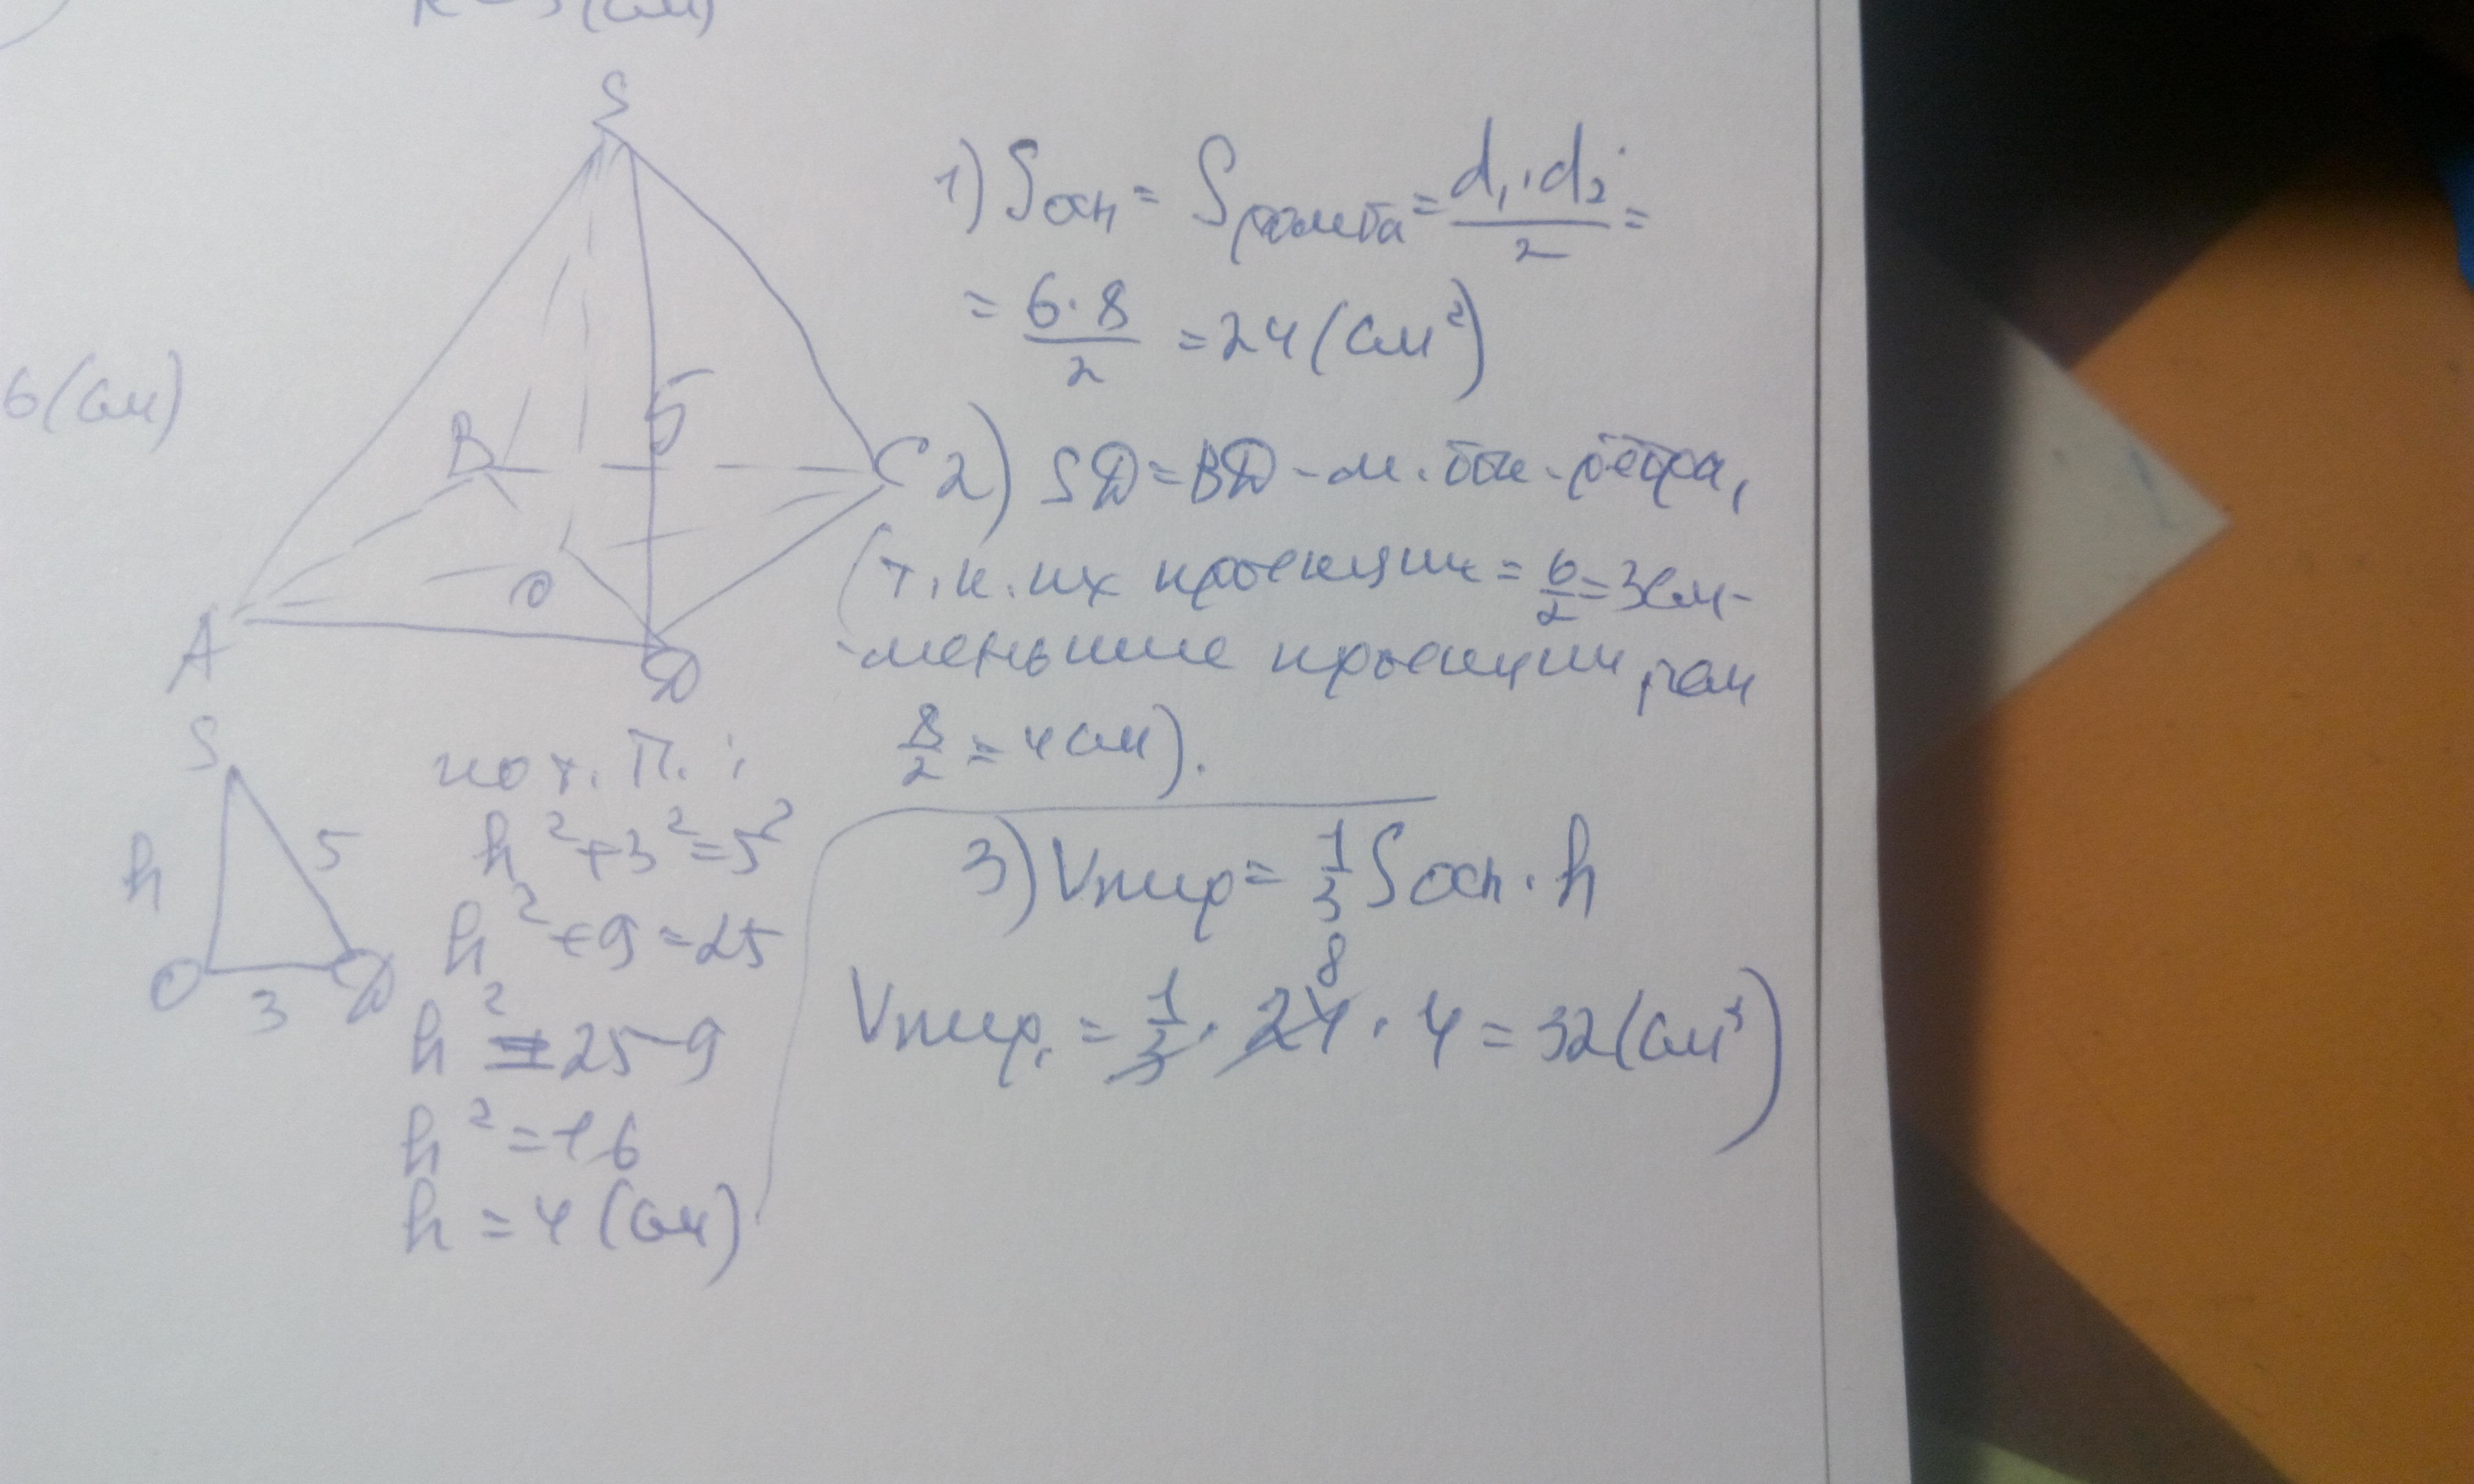 S
B
5
C
A
O
D
6 (см)
1) Sосн = Sромба = d₁·d₂/2 =
= 6·8/2 = 24 (см²)
2) SD = BD - м. бок. рёбра,
(т.к. их проекции = 6/2 = 3см -
- меньшие проекции, чем
8/2 = 4 см).
S
h
5
O
3
D
по т. П.:
h² + 3² = 5²
h² + 9 = 25
h² = 25 - 9
h² = 16
h = 4 (см)
3) Vпир = 1/3 Sосн · h
8
Vпир. = 1/3 · 24 · 4 = 32 (см³)